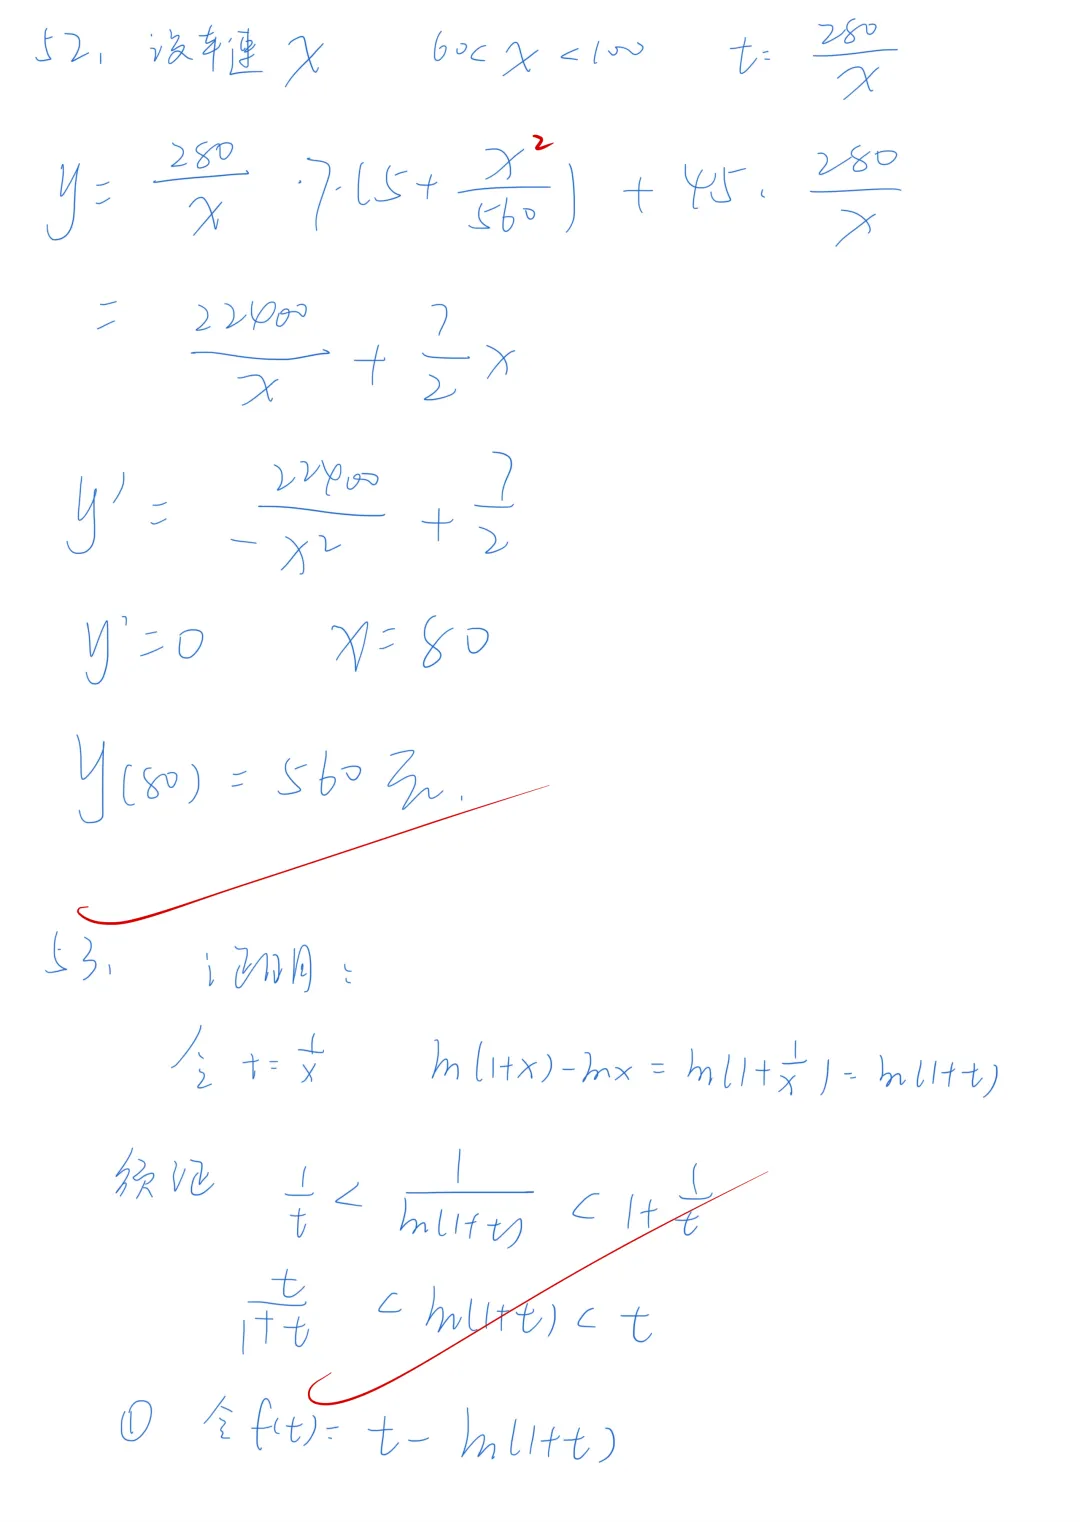 52. 设车速 x 60< x <100 t= 280/x
y= 280/x ·7·(5+ x²/560) + 45· 280/x
= 22400/x + 7/2 x
y' = 22400/-x² + 7/2
y'=0 x=80
y(80) = 560元.
53. 证明:
令 t= 1/x ln(1+x)-lnx = ln(1+1/x)= ln(1+t)
须证 1/t < 1/ln(1+t) < 1+ 1/t
t/1+t < ln(1+t) < t
① 令 f(t)= t- ln(1+t)